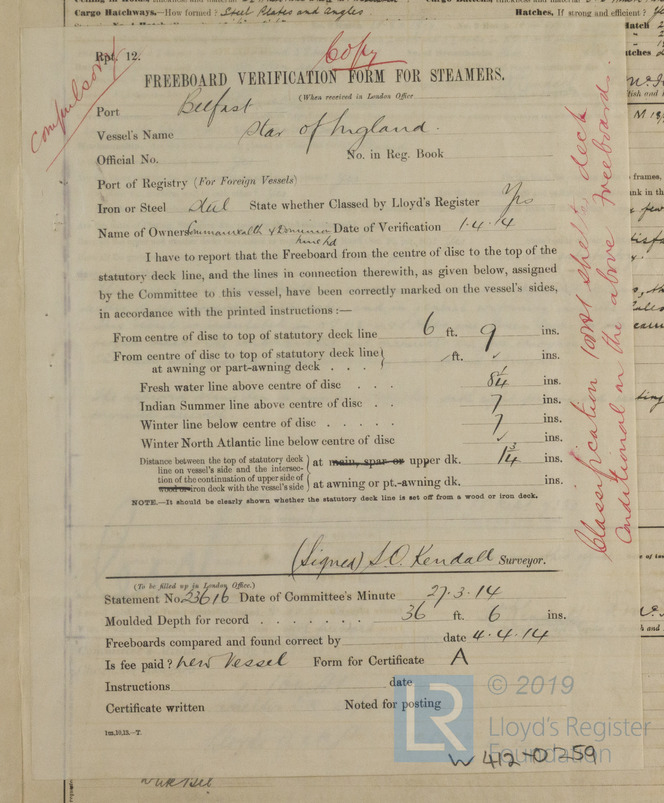 Cargo Hatchways.—How formed? Steel Plates and Angles
Hatches, If strong and efficient?
Rpt. 12.
Copy
compulsory
FREEBOARD VERIFICATION FORM FOR STEAMERS.
(When received in London Office
Port Belfast
Vessel's Name Star of England.
Official No. No. in Reg. Book
Port of Registry (For Foreign Vessels)
Iron or Steel Steel State whether Classed by Lloyd's Register Yes
Name of Owners Commonwealth & Dominion Line Ld Date of Verification 1.4.14
I have to report that the Freeboard from the centre of disc to the top of the
statutory deck line, and the lines in connection therewith, as given below, assigned
by the Committee to this vessel, have been correctly marked on the vessel's sides,
in accordance with the printed instructions :—
From centre of disc to top of statutory deck line 6 ft. 9 ins.
From centre of disc to top of statutory deck line
at awning or part-awning deck . . . ft. ins.
Fresh water line above centre of disc . . . 8¼ ins.
Indian Summer line above centre of disc . . 7 ins.
Winter line below centre of disc . . . . . 7 ins.
Winter North Atlantic line below centre of disc ins.
Distance between the top of statutory deck
line on vessel's side and the intersec-
tion of the continuation of upper side of
wood or iron deck with the vessel's side
at main, spar or upper dk. 1¾ ins.
at awning or pt.-awning dk. ins.
NOTE.—It should be clearly shown whether the statutory deck line is set off from a wood or iron deck.
(Signed) S.O. Kendall Surveyor.
(To be filled up in London Office.)
Statement No. 23616 Date of Committee's Minute 27.3.14
Moulded Depth for record . . . . . . . 36 ft. 6 ins.
Freeboards compared and found correct by date 4.4.14
Is fee paid? New Vessel Form for Certificate A
Instructions date
Certificate written Noted for posting
1m,10,13.—T.
Classification 100A1 shelter deck
conditional on the above Freeboards.
LR
© 2019
Lloyd's Register
Foundation
W412-0259